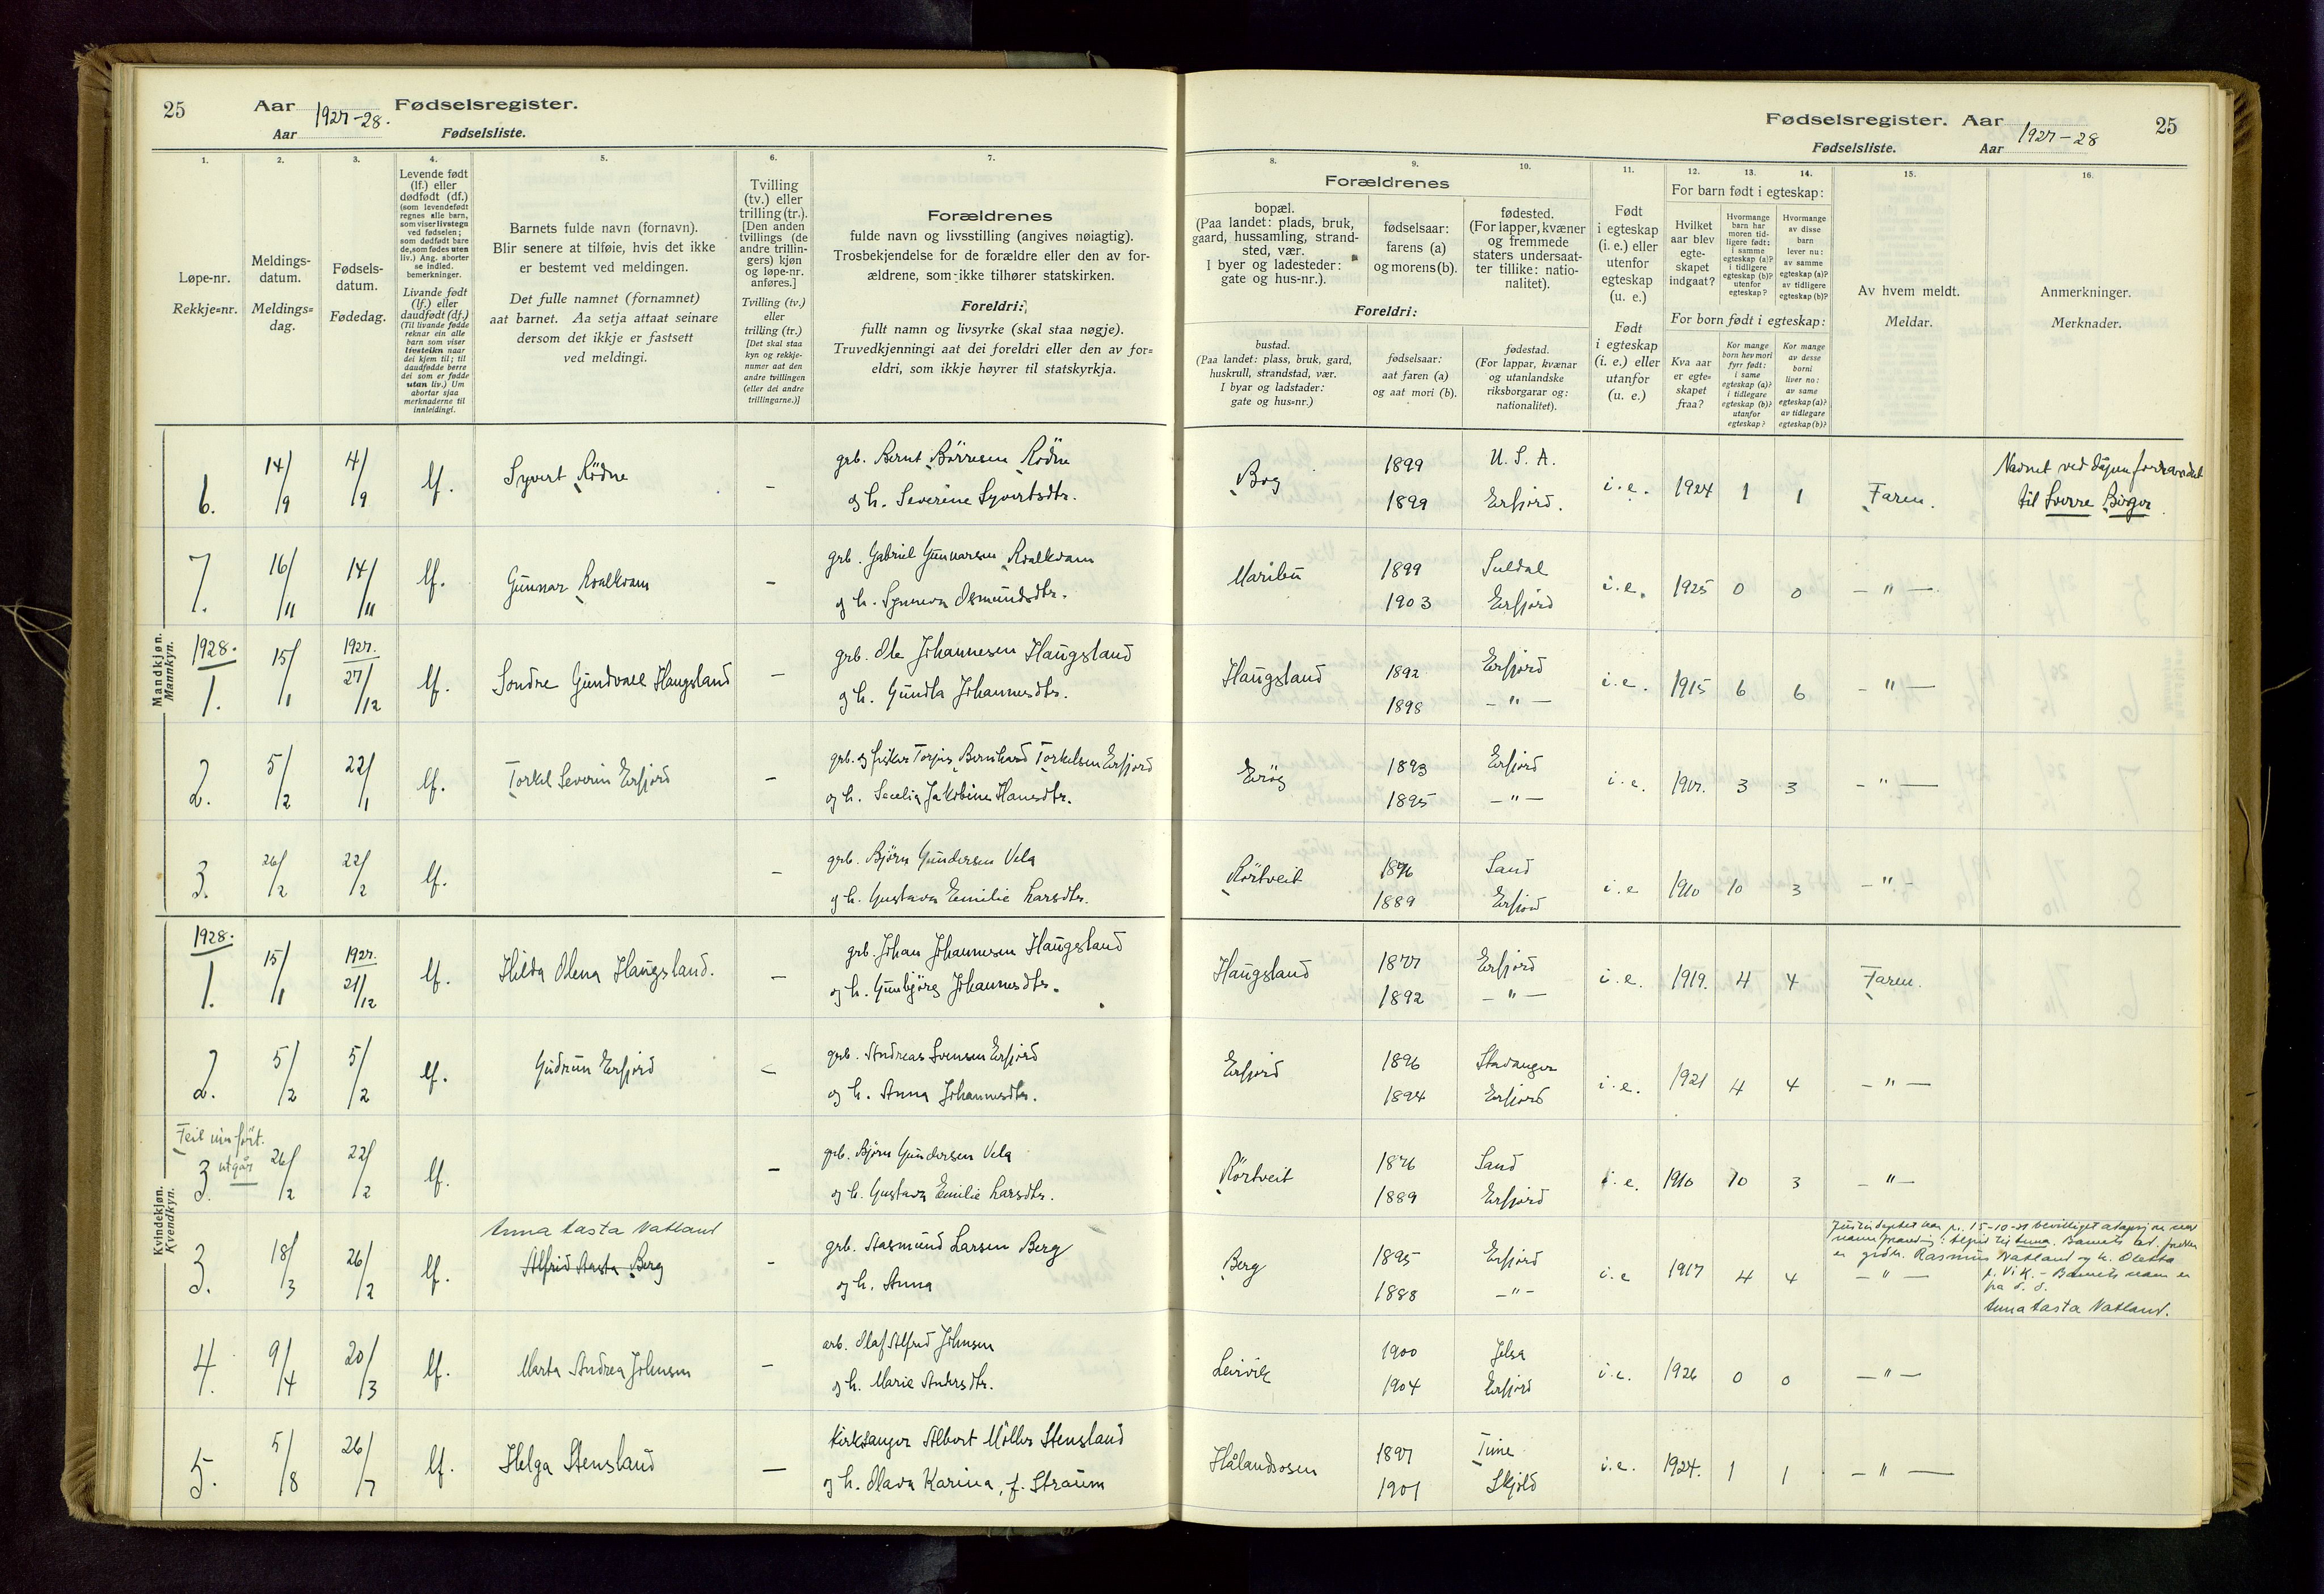 25 Aar 1927-28. Fødselsregister.
Aar Fødselsliste.
Fødselsregister. Aar 1927-28 25
Fødselsliste. Aar
1. 2. 3. 4. 5. 6. 7. 8. 9. 10. 11. 12. 13. 14. 15. 16.
Løpe-nr.
Rekkje=nr.
Meldings-
datum.
Meldings=
dag.
Fødsels-
datum.
Fødedag.
Levende født
(lf.) eller
dødfødt (df.)
(som levendefødt
regnes alle barn,
som viser livstegn
ved fødselen;
som dødfødt bare
de, som fødes uten
liv.) Ang. aborter
se indled.
bemerkninger.
Livande født
(lf.) eller
daudfødt (df.)
(Til livande fødde
reknar ein alle
barn som viser
livsteikn naar
dei kjem til; til
daudfødde berre
dei som er fødde
utan liv.) Um
abortar sjaa
merknaderne til
innleidingi.
Barnets fulde navn (fornavn).
Blir senere at tilføie, hvis det ikke
er bestemt ved meldingen.
Det fulle namnet (fornamnet)
aat barnet. Aa setja attaat seinare
dersom det ikkje er fastsett
ved meldingi.
Tvilling
(tv.) eller
trilling (tr.).
[Den anden
tvillings (de
andre trillin-
gers) kjøn
og løpe-nr.
anføres.]
Tvilling (tv.)
eller
trilling (tr.)
[Det skal staa
kyn og rekkje-
numer aat den
andre tvillingen
(eller dei andre
trillingarne.)]
Forældrenes
fulde navn og livsstilling (angives nøiagtig).
Trosbekjendelse for de forældre eller den av for-
ældrene, som ikke tilhører statskirken.
Foreldri:
fullt namn og livsyrke (skal staa nøgje).
Truvedkjenningi aat dei foreldri eller den av for=
eldri, som ikkje høyrer til statskyrkja.
Forældrenes
bopæl.
(Paa landet: plads, bruk,
gaard, hussamling, strand-
sted, vær.
I byer og ladesteder:
gate og hus-nr.).
fødselsaar:
farens (a)
og morens (b).
fødested.
(For lapper, kvæner
og fremmede
staters undersaat-
ter tillike: natio-
nalitet).
Foreldri:
bustad.
(Paa landet: plass, bruk, gard,
huskrull, strandstad, vær.
I byar og ladstader:
gate og hus=nr.)
fødselsaar:
aat faren (a)
og aat mori (b).
fødestad.
(For lappar, kvænar
og utanlandske
riksborgarar og:
nationalitet).
Født
i egteskap
(i. e.) eller
utenfor
egteskap
(u. e.)
Født
i egteskap
(i. e.) eller
utanfor
(u. e.)
For barn født i egteskap:
Hvilket
aar blev
egte-
skapet
indgaat?
Hvormange
barn har
moren tid-
ligere født:
i samme
egteskap (a)?
i tidligere
egteskap (b)?
utenfor
egteskap?
Hvormange
av disse
barn
lever nu:
av samme
egteskap (a)?
av tidligere
egteskap (b)?
For born født i egteskap:
Kva aar
er egte=
skapet
fraa?
Kor mange
born hev mori
fyrr født:
i same
egteskap (a)?
i tidlegare
egteskap (b)?
utanfor
egteskap?
Kor mange
av desse
borni
liver no:
av same
egteskap (a)?
av tidlegare
egteskap (b)?
Av hvem meldt.
Meldar.
Anmerkninger.
Merknader.
Mandkjøn.
Mannkyn.
6. 14/9 4/9 lf. Syvert Rödne – grb. Bernt Börresen Rödne
og h. Severine Syvertsdtr.
Bog 1899 U. S. A. i. e. 1924 1 1 Faren.
1899 Erfjord.
Navnet ved dåpen forandret
til Sverre Birger.
7. 16/11 14/11 lf. Gunnar Kvalkvam – grb. Gabriel Gunnarsen Kvalkvam
og h. Synneva Osmundsdtr.
Maribu 1899 Suldal i. e. 1925 0 0 – " –
1903 Erfjord
1928. 1927.
1. 15/1 27/12 lf. Sondre Gundvall Haugsland – grb. Ole Johannesen Haugsland
og h. Gundla Johannesdtr.
Haugsland 1892 Erfjord i. e. 1915 6 6 – " –
1898 – " –
2. 5/2 22/1 lf. Torkel Severin Erfjord – grb. og fisker Torjus Bernhard Torkelsen Erfjord
og h. Secelia Jakobine Hansdtr.
1893 Erfjord i. e. 3 3 – " –
1895 – " –
3. 26/2 22/2 lf. – grb. Björn Gundersen Vela
og h. Gustava Emilie Larsdtr.
Körtveit 1876 Sand i. e 1910 10 3 – " –
1889 Erfjord
Kvindekjøn.
Kvendkyn.
1928. 1927.
1. 15/1 21/12 lf. Hilda Olena Haugsland. – grb. Johan Johannesen Haugsland
og h. Gunbjörg Johannesdtr.
Haugsland 1877 Erfjord i. e. 1919. 4 4 Faren.
1892 – " –
2. 5/2 5/2 lf. Gudrun Erfjord – grb. Andreas Svensen Erfjord
og h. Anna Johannesdtr.
Erfjord 1896 Stavanger i. e. 1921 4 4 – " –
1894 Erfjord
Feil innfört.
utgår
3. 26/2 22/2 lf. – grb. Björn Gundersen Vela
og h. Gustava Emilie Larsdtr.
Körtveit 1876 Sand i. e. 1910 10 3 – " –
1889 Erfjord
Anna Aasta Natland
3. 18/3 26/2 lf. Alfrid Aasta Berg – grb. Aasmund Larsen Berg
og h. Anna
Berg 1895 Erfjord i. e 1917 4 4 – " –
1888 – " –
15-10-31 bevilliget adopsjon
Alfrid til Anna. Barnets
er grdbr. Rasmus Natland og h.
p. Vik. – Barnets navn er
fra d. d.
Anna Aasta Natland.
4. 9/4 20/3 lf. Marta Andrea Johnsen – arb. Olaf Alfred Johnsen
og h. Marie Andersdtr.
Leirvik 1900 Jelsa i. e. 1926 0 0 – " –
1904 Erfjord
5. 5/8 26/7 lf. Helga Stensland – kirkesanger Albert Möller Stensland
og h. Olava Karina, f. Straum
Hålandsosen 1897 Time i. e. 1924. 1 1 – " –
1901 Skjold